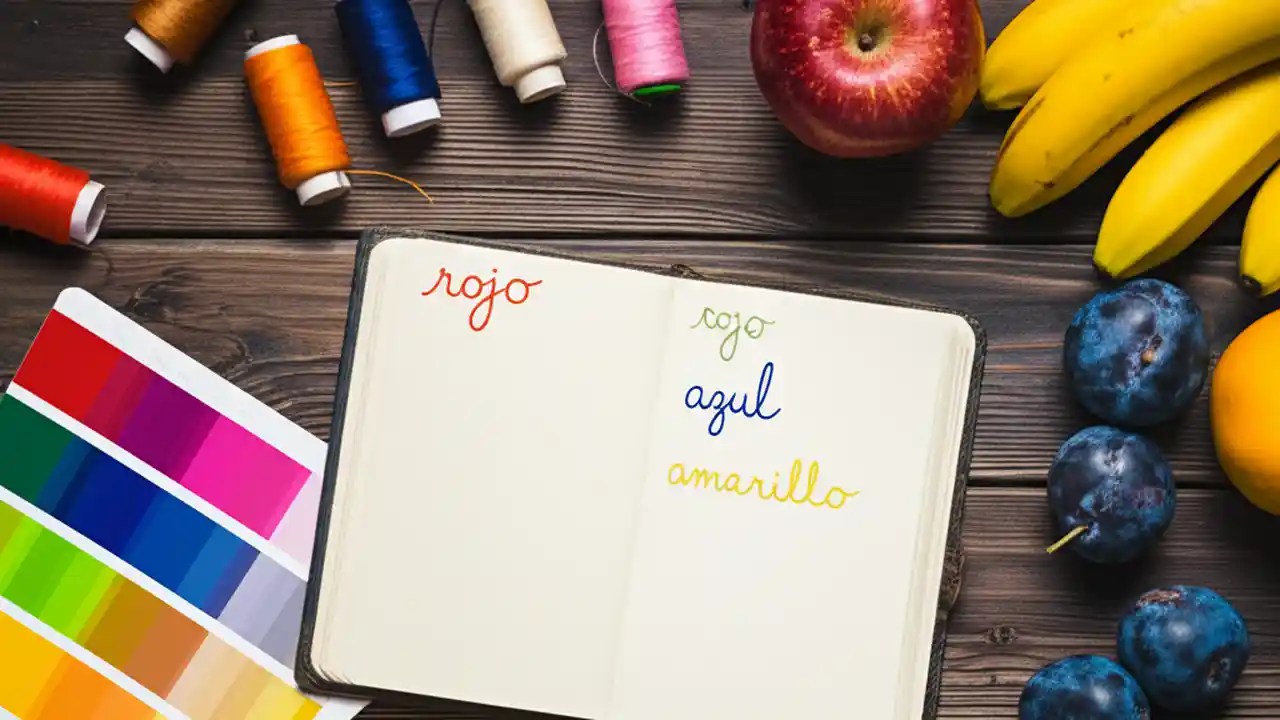 rojo
rojo
azul
amarillo